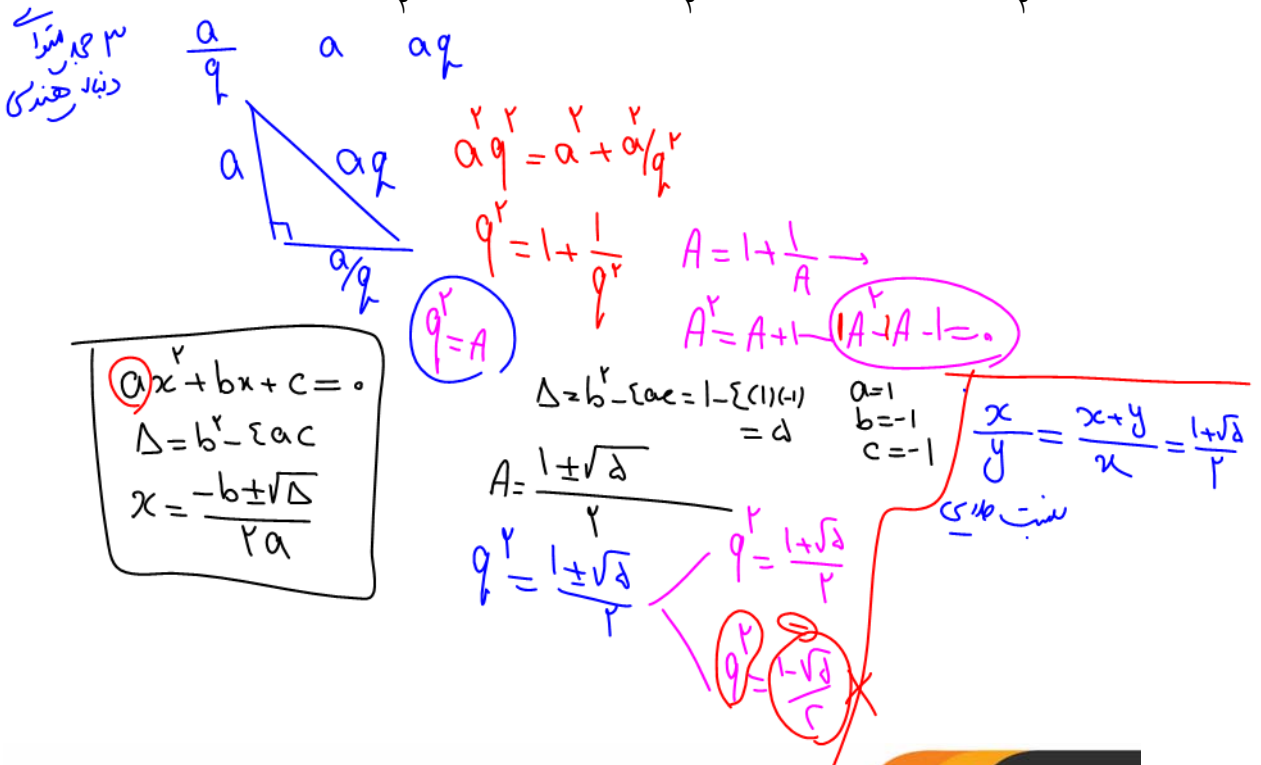 ۲ ۲ ۲
۳ جمله متوالی
دنباله هندسی
a/q a aq
a aq
a/q
a²q² = a² + a²/q²
q² = 1 + 1/q²
q² = A
A = 1 + 1/A →
A² = A + 1 → 1A² - 1A - 1 = ۰
ax² + bx + c = ۰
Δ = b² - ۴ac
x = (-b ± √Δ)/۲a
Δ = b² - ۴ac = 1 - ۴(1)(-1)
= ۵
a = 1
b = -1
c = -1
A = (1 ± √۵)/۲
q² = (1 ± √۵)/۲
q² = (1 + √۵)/۲
q² = (1 - √۵)/۲
x/y = (x + y)/x = (1 + √۵)/۲
نسبت طلایی